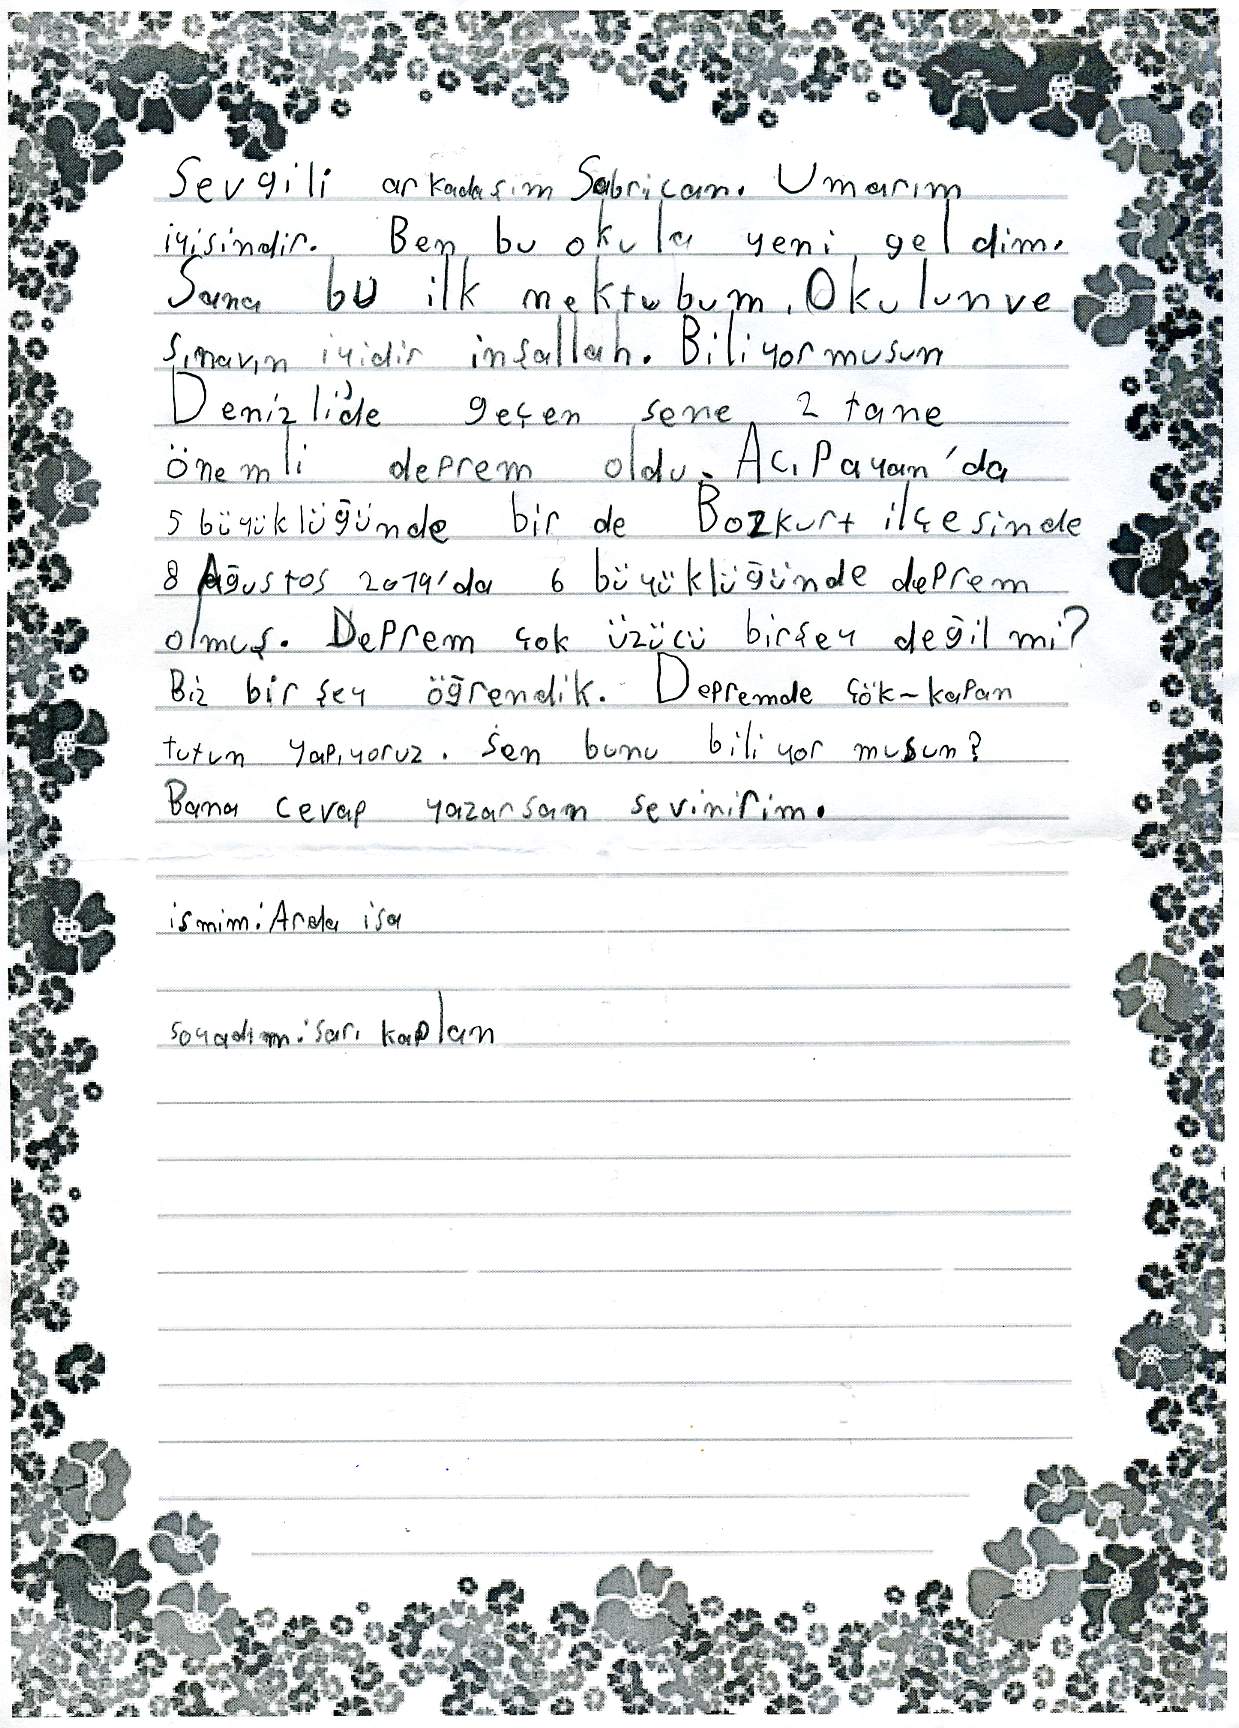 Sevgili arkadaşım Sabrican. Umarım
iyisindir. Ben bu okula yeni geldim.
Sana bu ilk mektubum. Okulun ve
sınavın iyidir inşallah. Biliyormusun
Denizli'de geçen sene 2 tane
önemli deprem oldu. Acıpayam'da
5 büyüklüğünde bir de Bozkurt ilçesinde
8 Ağustos 2019'da 6 büyüklüğünde deprem
olmuş. Deprem çok üzücü birşey değil mi?
Biz bir şey öğrendik. Depremde çök-kapan
tutun yapıyoruz. Sen bunu biliyor musun?
Bana cevap yazarsan sevinirim.
ismim: Arda isa
soyadım: sarı kaplan